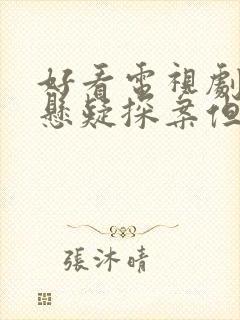 好看電視劇
懸疑探案但
張沐晴